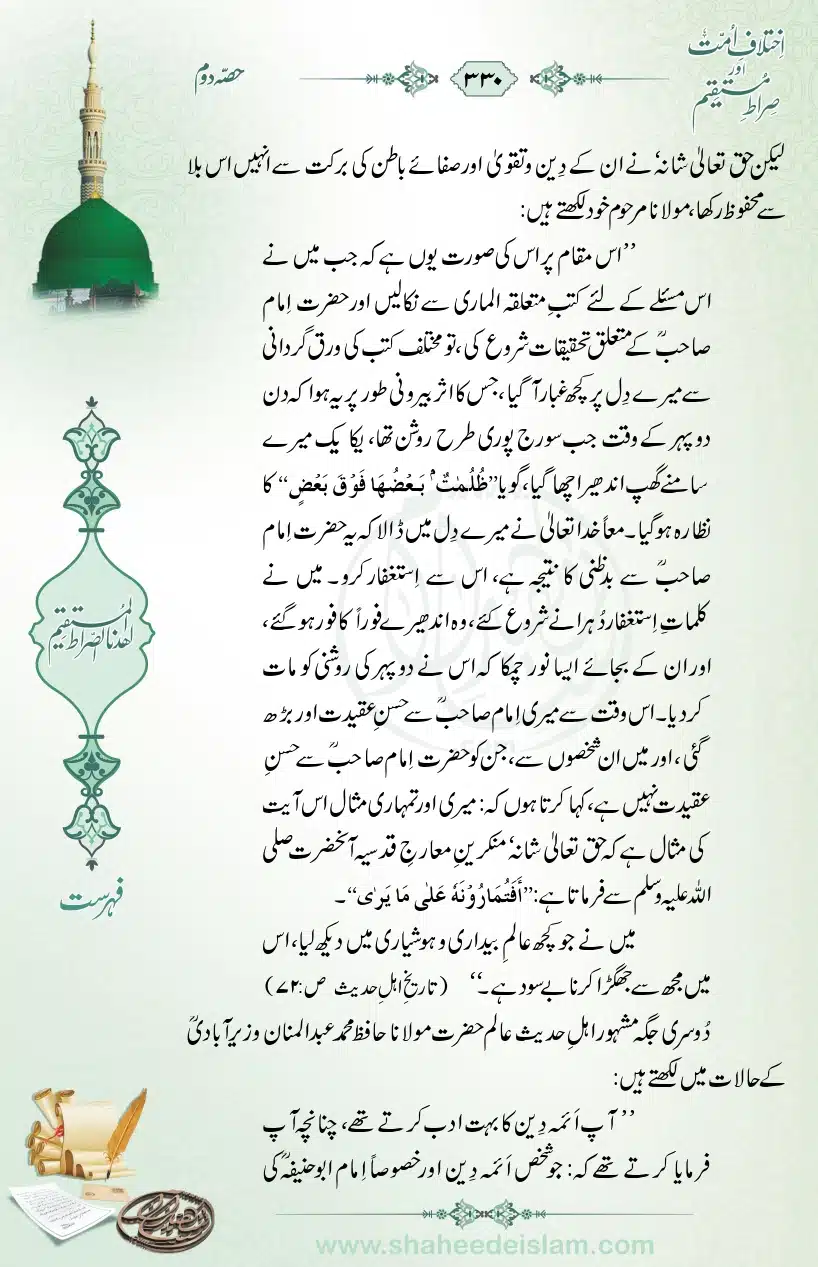 اِختلافِ اُمّت
اور
صِراطِ مُستقیم
۳۳۰
حصّہ دوم
لیکن حق تعالیٰ شانہٗ نے ان کے دِین وتقویٰ اور صفائے باطن کی برکت سے انہیں اس بلا
سے محفوظ رکھا، مولانا مرحوم خود لکھتے ہیں:
’’اس مقام پر اس کی صورت یوں ہے کہ جب میں نے
اس مسئلے کے لئے کتبِ متعلقہ الماری سے نکالیں اور حضرت اِمام
صاحبؒ کے متعلق تحقیقات شروع کی، تو مختلف کتب کی ورق گردانی
سے میرے دِل پر کچھ غبار آگیا، جس کا اثر بیرونی طور پر یہ ہوا کہ دن
دوپہر کے وقت جب سورج پوری طرح روشن تھا، یکایک میرے
سامنے گھپ اندھیرا چھا گیا، گویا ’’ظُلُمٰتٌۢ بَعْضُهَا فَوْقَ بَعْضٍ‘‘ کا
نظارہ ہوگیا۔ معاً خدا تعالیٰ نے میرے دِل میں ڈالا کہ یہ حضرت اِمام
صاحبؒ سے بدظنی کا نتیجہ ہے، اس سے اِستغفار کرو۔ میں نے
کلماتِ اِستغفار دُہرانے شروع کئے، وہ اندھیرے فوراً کافور ہوگئے،
اور ان کے بجائے ایسا نور چمکا کہ اس نے دوپہر کی روشنی کو مات
کردیا۔ اس وقت سے میری اِمام صاحبؒ سے حسنِ عقیدت اور بڑھ
گئی، اور میں ان شخصوں سے، جن کو حضرت اِمام صاحبؒ سے حسنِ
عقیدت نہیں ہے، کہا کرتا ہوں کہ: میری اور تمہاری مثال اس آیت
کی مثال ہے کہ حق تعالیٰ شانہٗ منکرینِ معارجِ قدسیہ آنحضرت صلی
اللہ علیہ وسلم سے فرماتا ہے: ’’أَفَتُمَارُوْنَهٗ عَلٰى مَا يَرٰى‘‘۔
میں نے جو کچھ عالمِ بیداری و ہوشیاری میں دیکھ لیا، اس
میں مجھ سے جھگڑا کرنا بے سود ہے۔‘‘ (تاریخِ اہلِ حدیث ص:۷۲)
دُوسری جگہ مشہور اہلِ حدیث عالم حضرت مولانا حافظ محمد عبدالمنان وزیرآبادیؒ
کے حالات میں لکھتے ہیں:
’’آپ اَئمہ دِین کا بہت ادب کرتے تھے، چنانچہ آپ
فرمایا کرتے تھے کہ: جو شخص اَئمہ دِین اور خصوصاً اِمام ابوحنیفہؒ کی
اهدنا الصراط المستقيم
فہرست
www.shaheedeislam.com